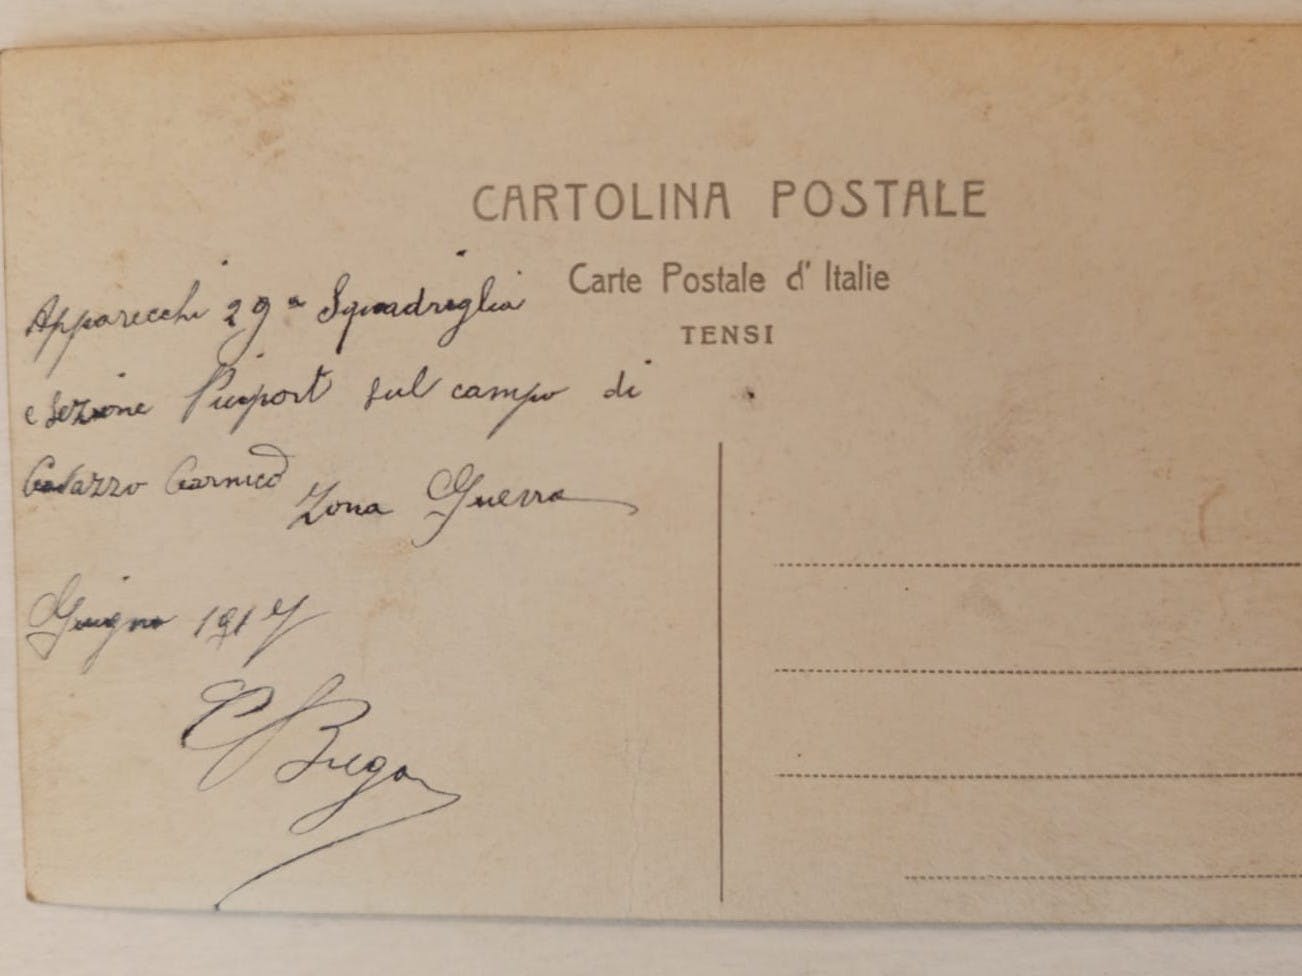 CARTOLINA POSTALE
Carte Postale d' Italie
TENSI
Apparecchi 29ª Squadriglia
e Sezione Nieuport sul campo di
Cavazzo Carnico Zona Guerra
Giugno 1917
Brega